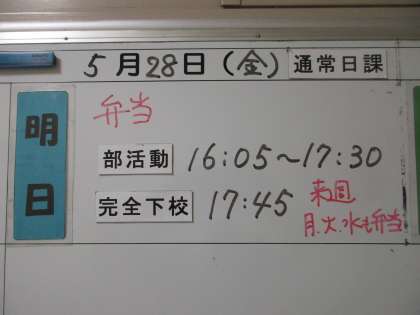 5月28日(金) 通常日課
明日
弁当
部活動 16:05〜17:30
完全下校 17:45
来週
月.火.水も弁当